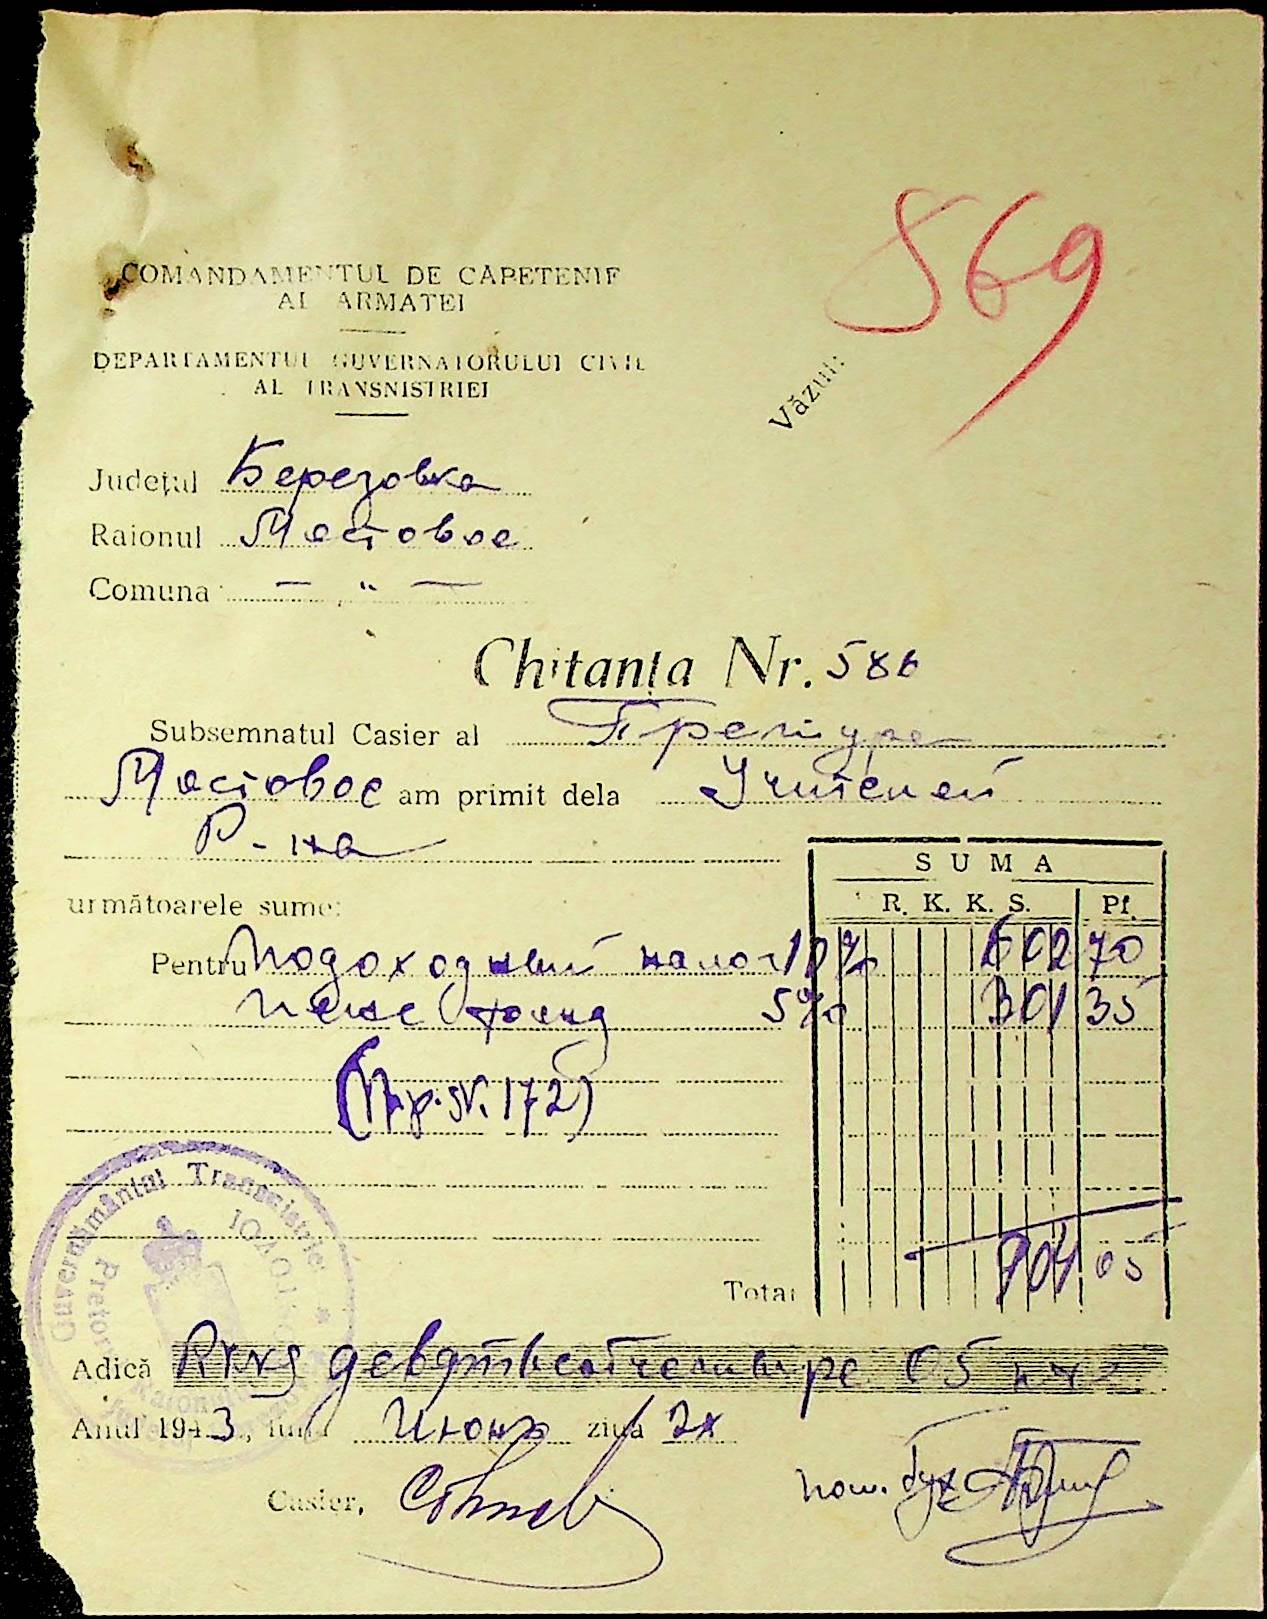 569
COMANDAMENTUL DE CAPETENIE
AL ARMATEI
DEPARTAMENTUL GUVERNATORULUI CIVIL
AL TRANSNISTRIEI
Văzut:
Județul Березовка
Raionul Мостовое
Comuna — „ —
Chitanța Nr. 586
Subsemnatul Casier al Претуре
Мостовое am primit dela Учителей
Р-на
SUMA
următoarele sume:
R. K. K. S. Pf.
Pentru Подоходный налог 10% 602 70
пенс фонд 5% 301 35
(Пр. N. 172)
Guvernământul Transnistriei
Total 904 05
Adică RKKS девятьсот четыре 05
Anul 1943, luna Июнь ziua
Casier,
пом. бух